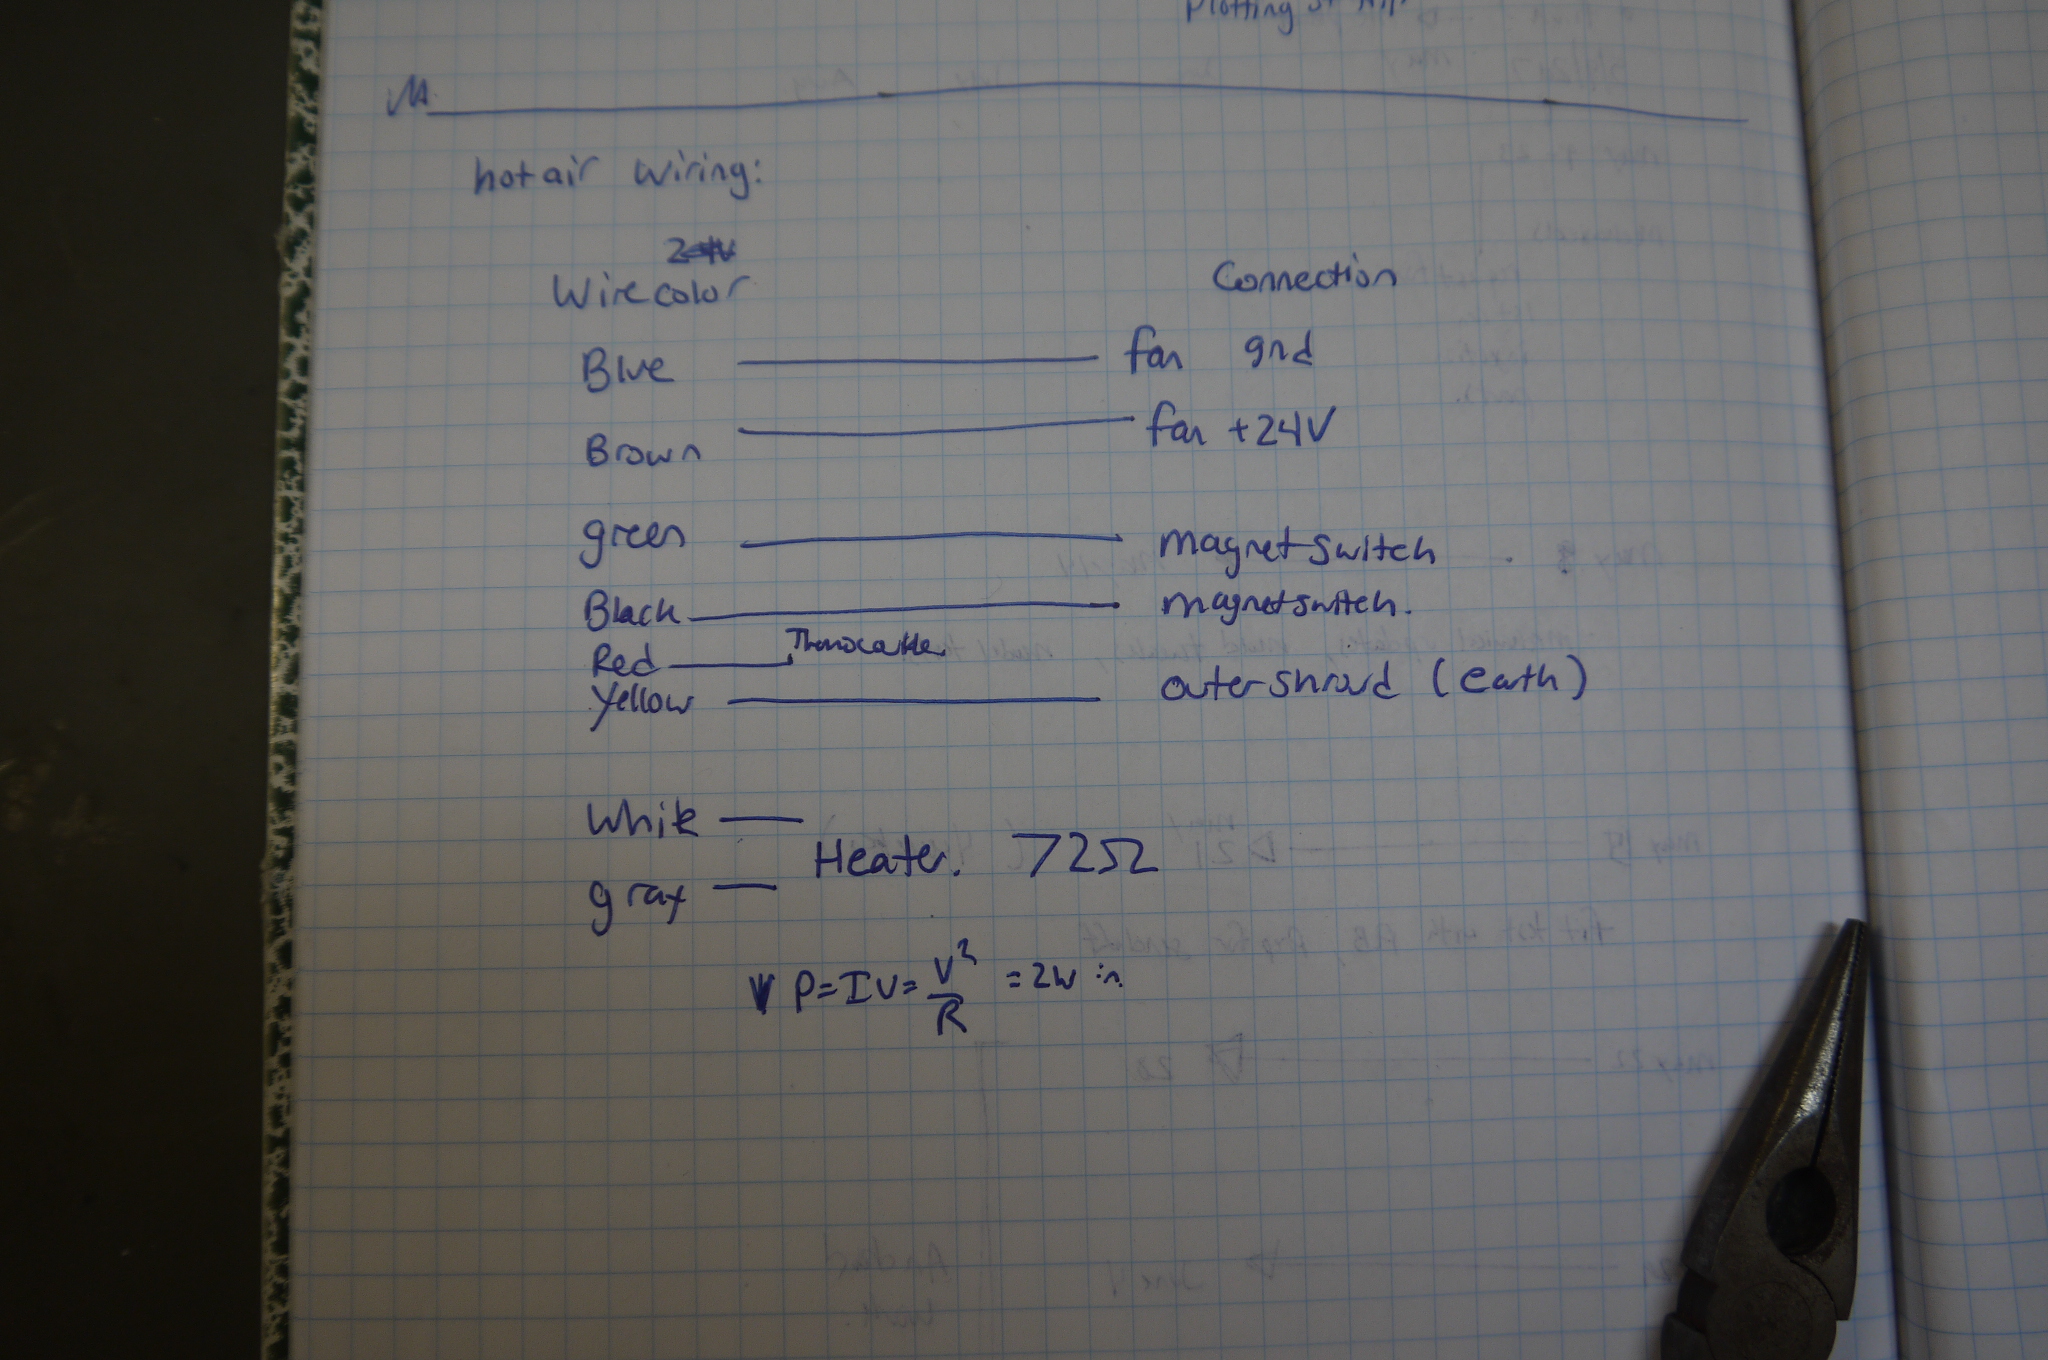 Plotting
hot air wiring:
Wire color Connection
Blue fan gnd
Brown fan +24V
green magnet switch
Black magnet switch.
Red
Yellow outer shroud (earth)
White
Heater. 72Ω
gray
P=IV=V²/R =2W in